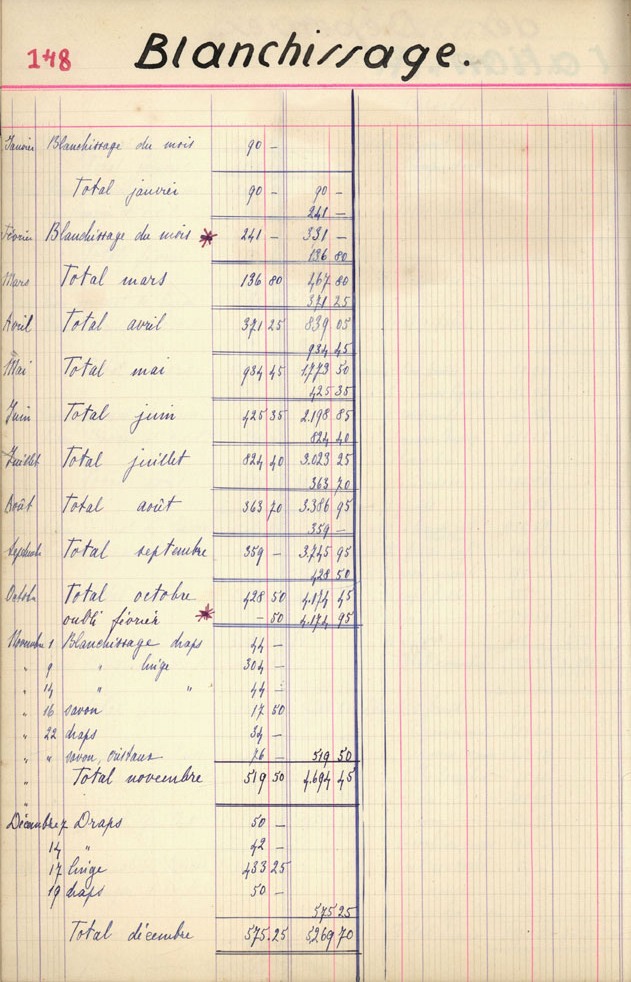 148 Blanchissage.
Janvier Blanchissage du mois 90 -
Total janvier 90 - 90 -
241 -
Février Blanchissage du mois * 241 - 331 -
136 80
Mars Total mars 136 80 467 80
371 25
Avril Total avril 371 25 839 05
934 45
Mai Total mai 934 45 1.773 50
425 35
Juin Total juin 425 35 2.198 85
824 40
Juillet Total juillet 824 40 3.023 25
363 70
Août Total août 363 70 3.386 95
359 -
Septembre Total septembre 359 - 3.745 95
428 50
Octobre Total octobre 428 50 4.174 45
oubli février * - 50 4.174 95
Novembre 1 Blanchissage draps 44 -
" 9 " linge 304 -
" 14 " " 44 -
" 16 savon 17 50
" 22 draps 34 -
" " savon, cristaux 76 - 519 50
" Total novembre 519 50 4.694 45
"
Décembre 7 Draps 50 -
14 " 42 -
17 linge 433 25
19 draps 50 -
575 25
Total décembre 575.25 5269 70